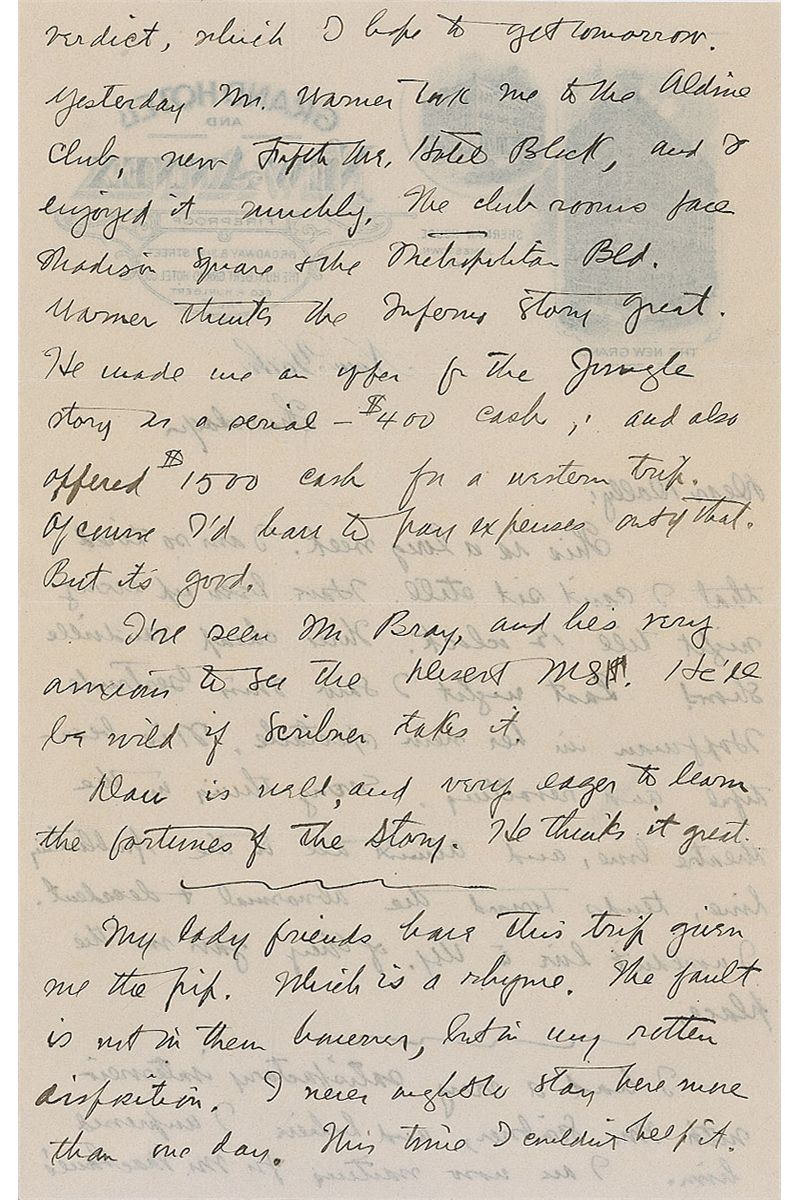 verdict, which I hope to get tomorrow.
Yesterday Mr. Warner took me to the Aldine
Club, new Fifth Ave. Hotel Block, and I
enjoyed it muchly. The club rooms face
Madison Square & the Metropolitan Bld.
Warner thinks the Inferno story great.
He made me an offer for the Jungle
story as a serial – $400 cash; and also
offered $1500 cash for a western trip.
Of course I'd have to pay expenses out of that.
But it's good.
I've seen Mr. Bray, and he's very
anxious to see the Desert MSS. He'll
be wild if Scribner takes it.
Dan is well, and very eager to learn
the fortunes of the story. He thinks it great.
My lady friends have this trip given
me the pip. Which is a rhyme. The fault
is not in them however, but in my rotten
disposition. I never ought to stay here more
than one day. This time I couldn't help it.